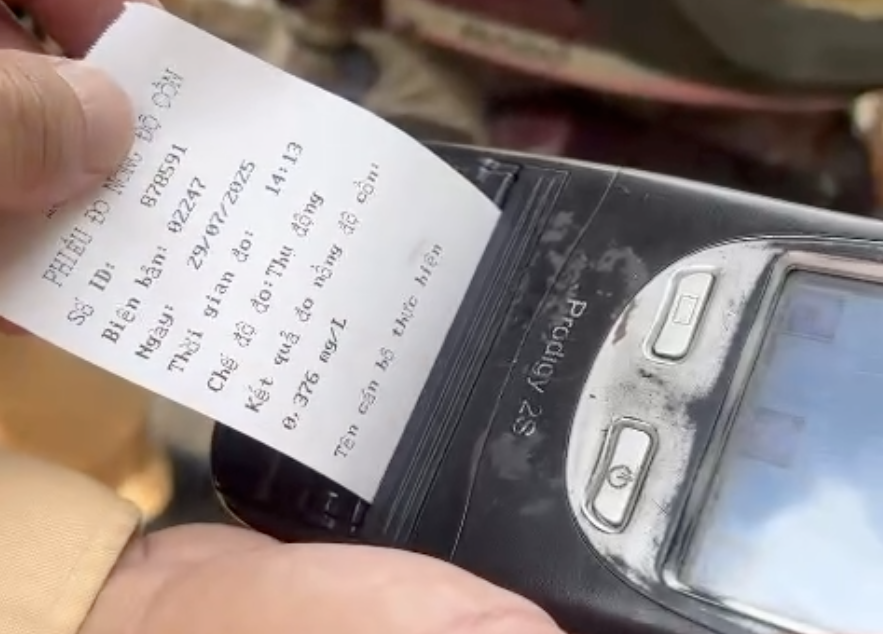 PHIẾU ĐO NỒNG ĐỘ CỒN
Số ID: 878591
Biên bản: 02247
Ngày: 29/07/2025
Thời gian đo: 14:13
Chế độ đo:Thụ động
Kết quả đo nồng độ cồn:
0.376 mg/L
Tên cán bộ thực hiện
Prodigy 2S